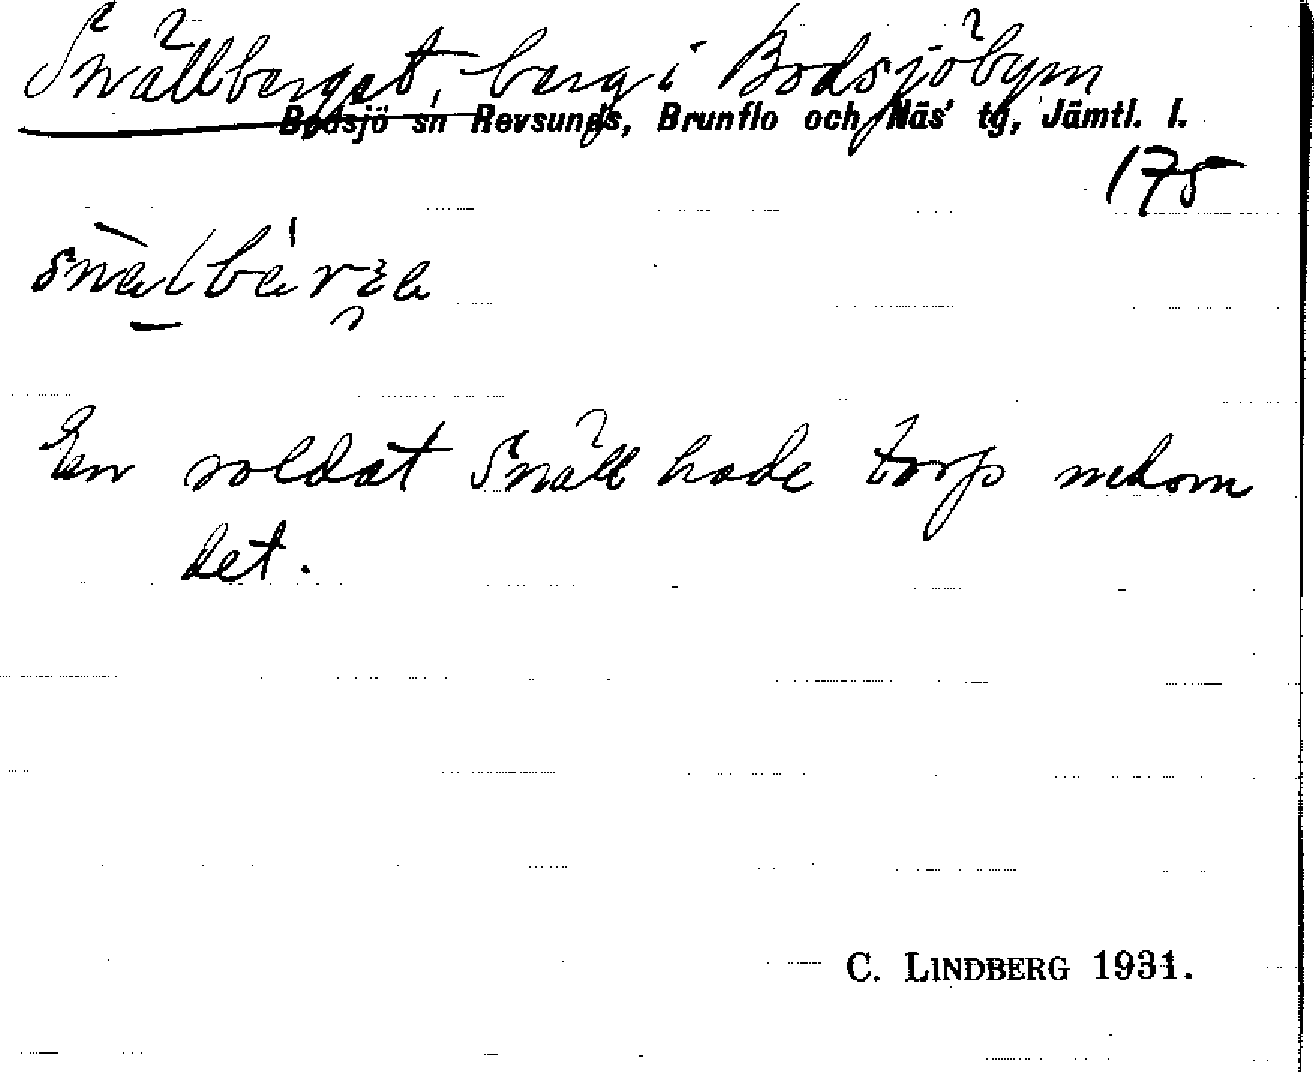 Snällberget, berg i Bodsjöbyn
Bodsjö sn Revsunds, Brunflo och Näs' tg, Jämtl. l.
175
En soldat Snäll hade torp nedom
det.
C. LINDBERG 1931.